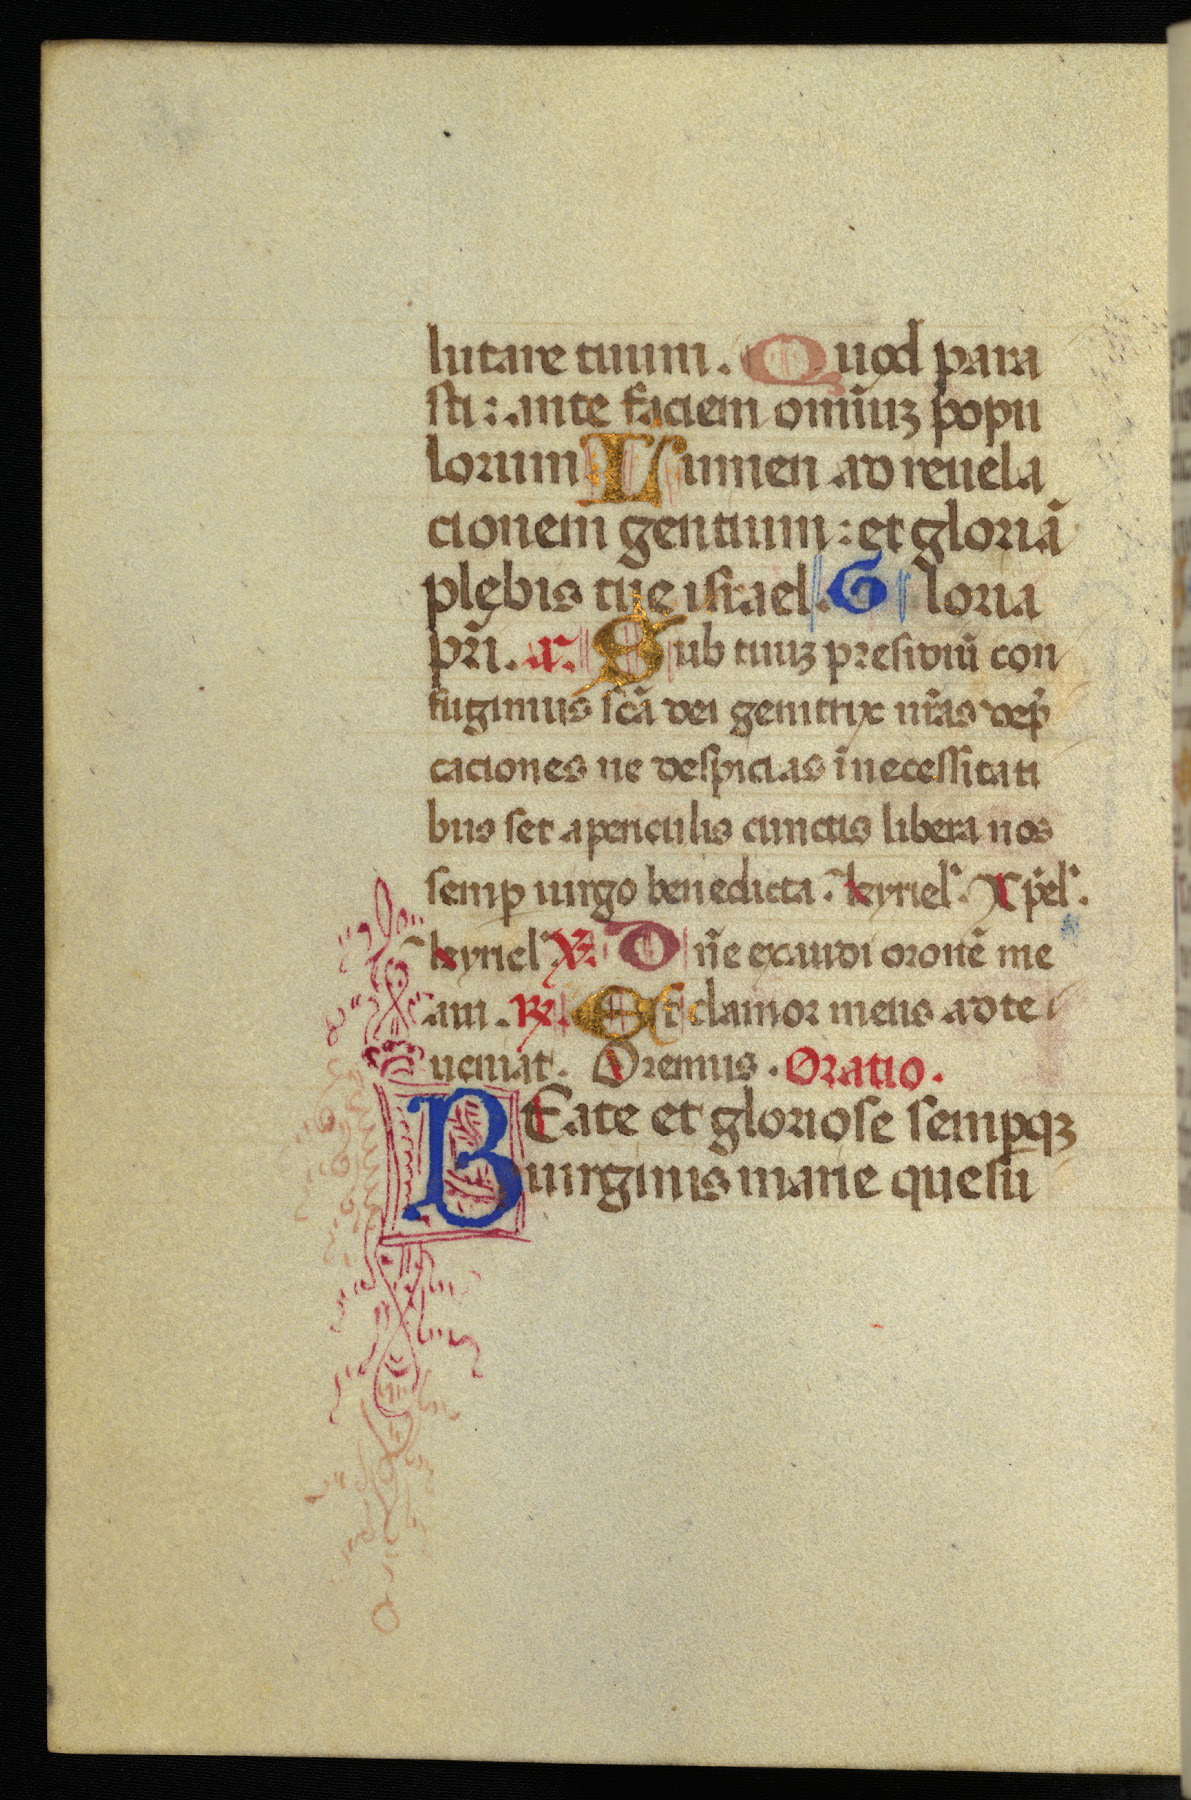 lutare tuum. Quod para
sti: ante faciem omīuꝫ popu
lorum Lumen ad reuela
cionem gentium: et gloriā
plebis tue israel. Gloria
pr̄i. a᷒. Sub tuuꝫ presidiū con
fugimus sc̄ā dei genitrix nr̄as dep̄
caciones ne despicias īnecessitati
bus set apericulis cunctis libera nos
semꝑ uirgo benedicta. kyriel̓. Xp̄el̓.
kyriel̓ ℣. Dn̄e exaudi oronē me
am. ℟. Et clamor meus ad te
ueniat. Oremus. Oratio.
BEate et gloriose semꝑqꝫ
uirginis marie quesū